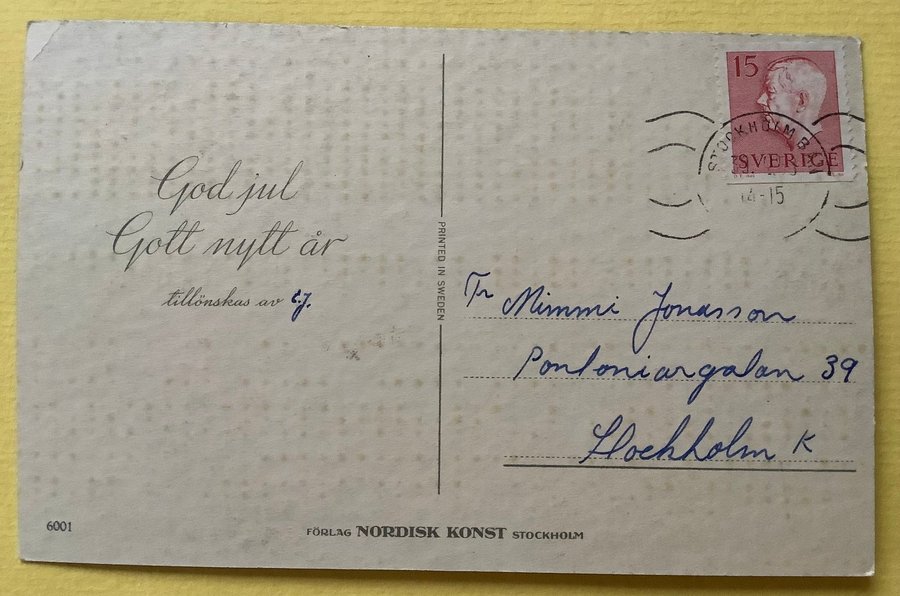 God jul
Gott nytt år
tillönskas av
PRINTED IN SWEDEN
15
SVERIGE
STOCKHOLM
14-15
Fr Mimmi Jonasson
Pontoniargatan 39
Stockholm K
6001
FÖRLAG NORDISK KONST STOCKHOLM